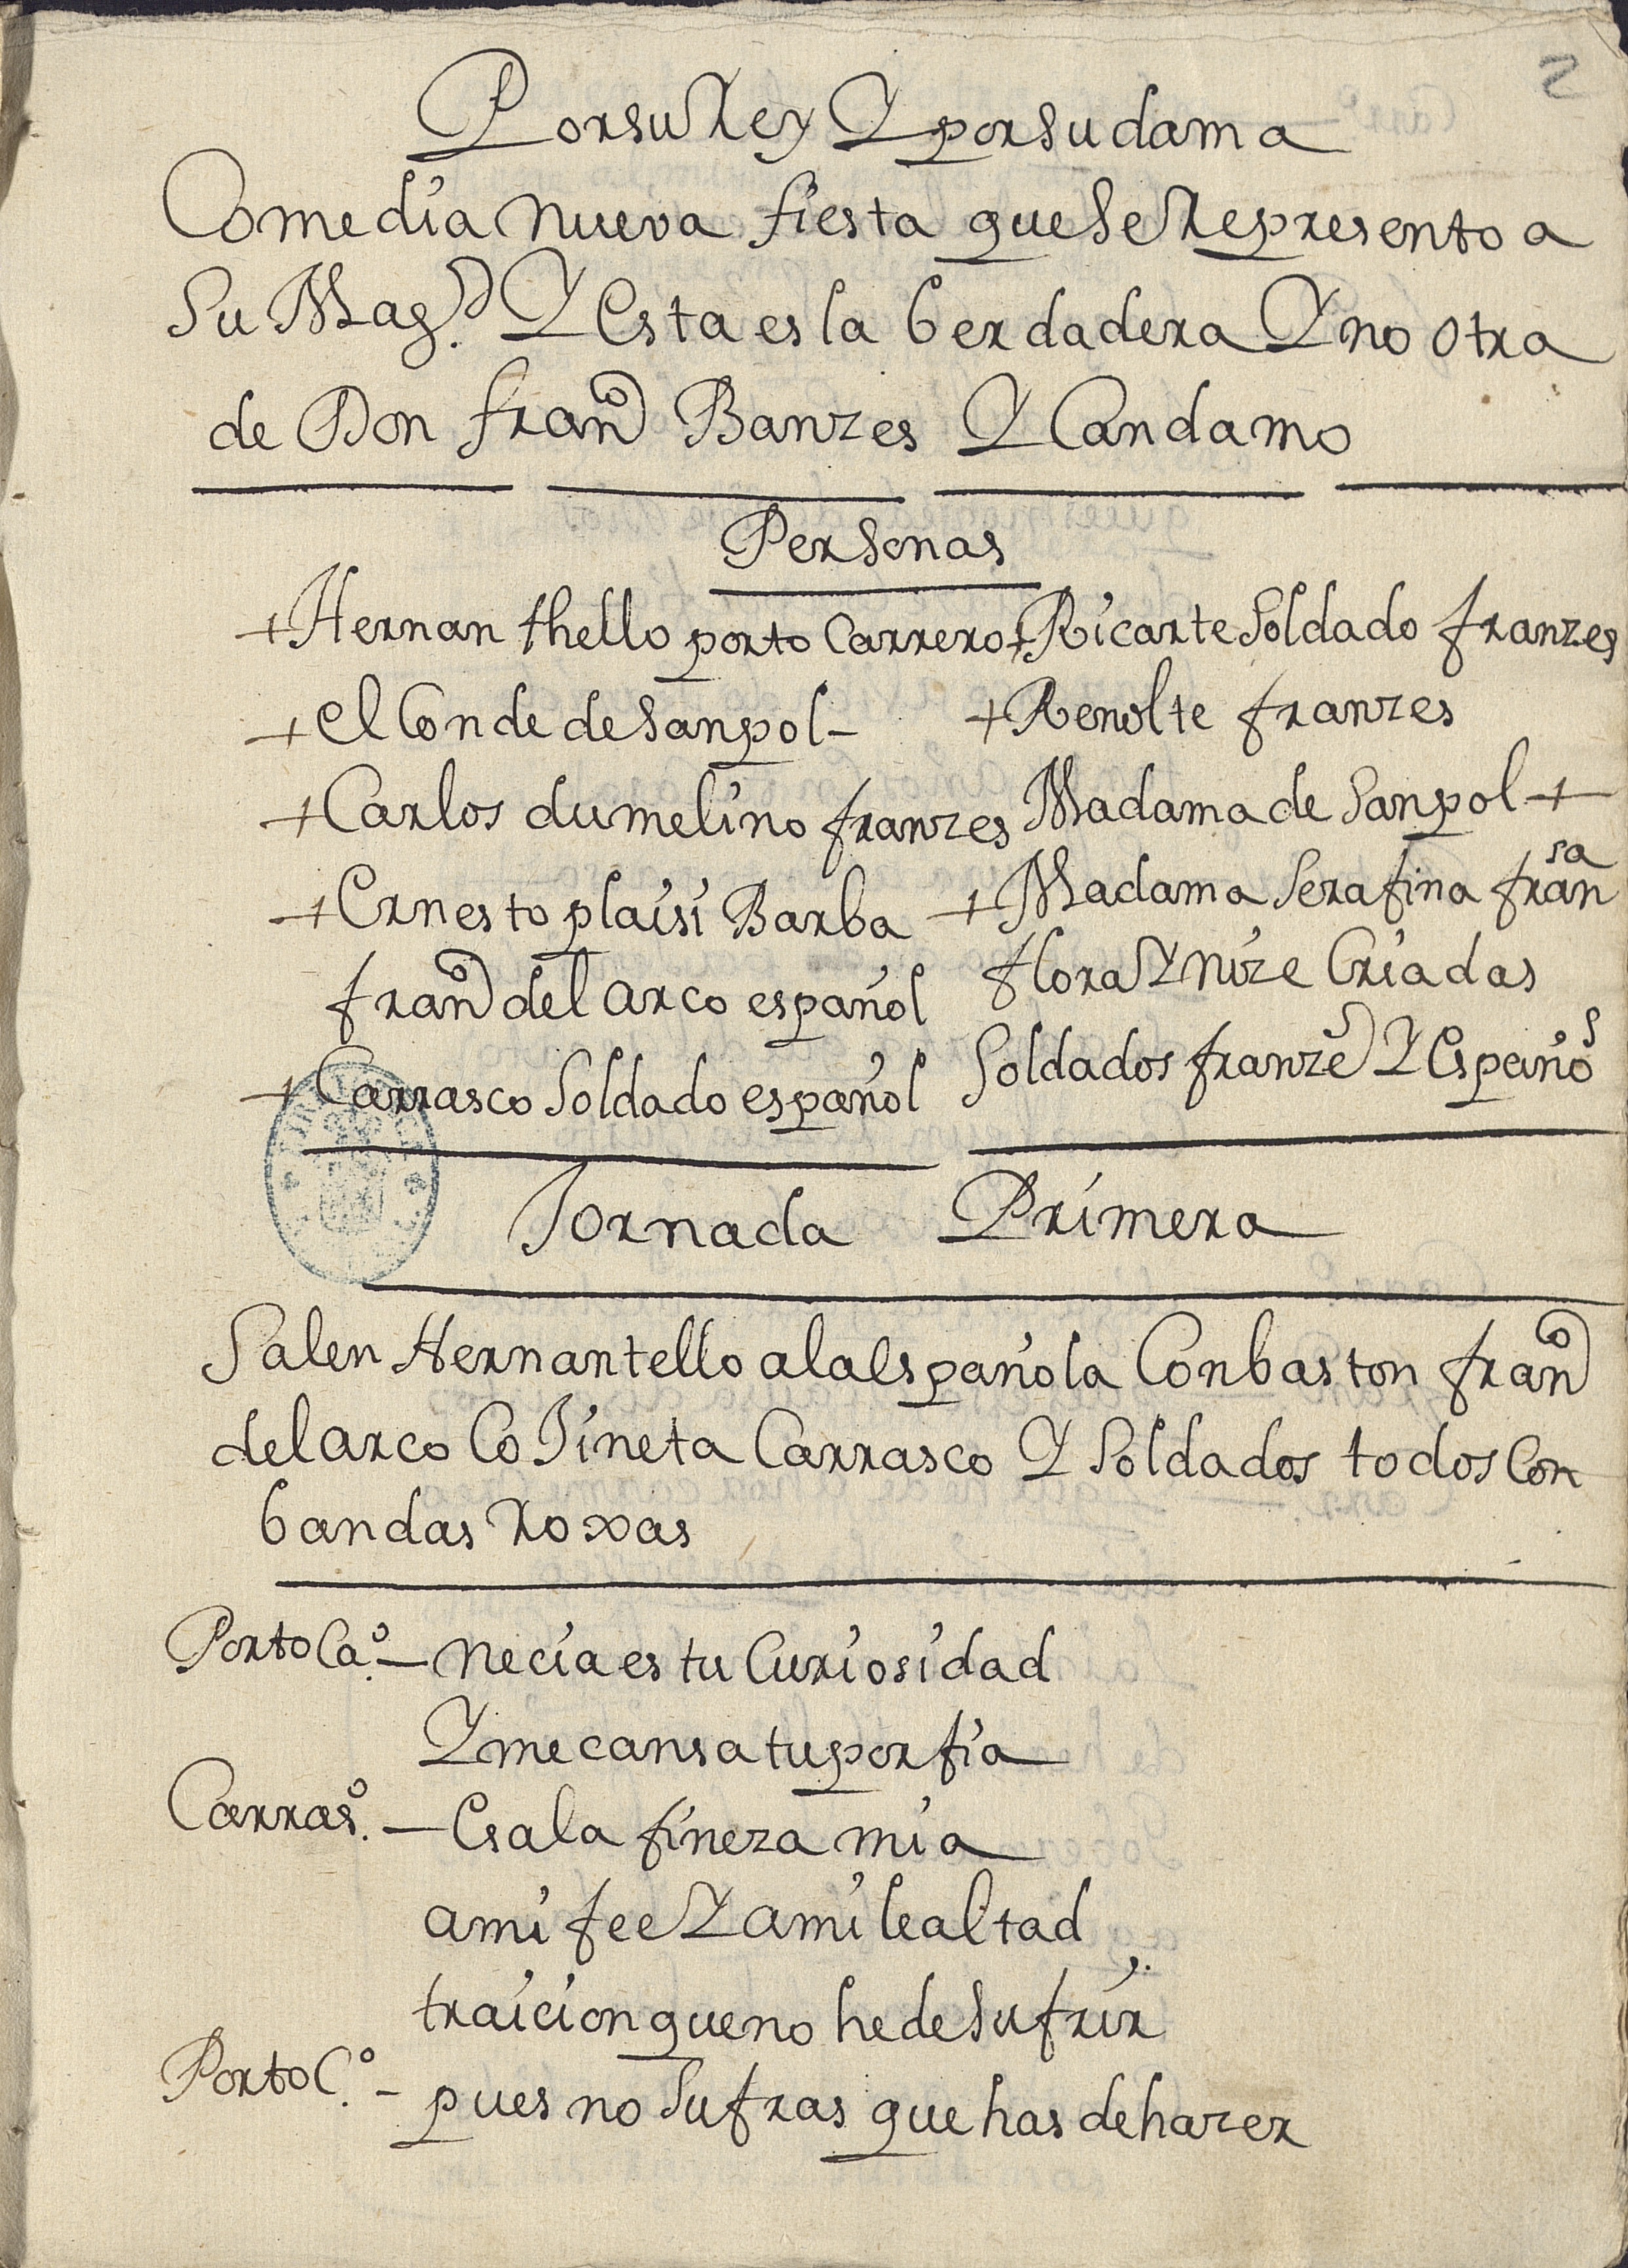 2
Por su Rey Y por su dama
Comedia nueva fiesta que se Represento a
Su Mag.d Y Esta es la berdadera Y no otra
de Don fran.co Banzes Y Candamo
Personas
+ Hernan thello porto Carrero
+ el Conde de Sanpol -
+ Carlos dumelino franzes
+ Ernesto plaisi Barba
fran.co del arco español
+ Carrasco Soldado español
+ Ricarte Soldado franzes
+ Renolte franzes
Madama de Sanpol +
+ Madama Serafina fran sa
flora Y nize Criadas
Soldados franzes Y Españos
Jornada Primera
Salen Hernan tello a la española Con baston fran.co
del arco Co Jineta Carrasco Y Soldados todos Con
bandas roxas
Porto Ca.o — necia es tu Curiosidad
Y me cansa tu porfia
Carras.o — Es a la fineza mia
a mi fee Y a mi lealtad
traicion que no he de Sufrir
Porto C.o - pues no Sufras que has de hazer